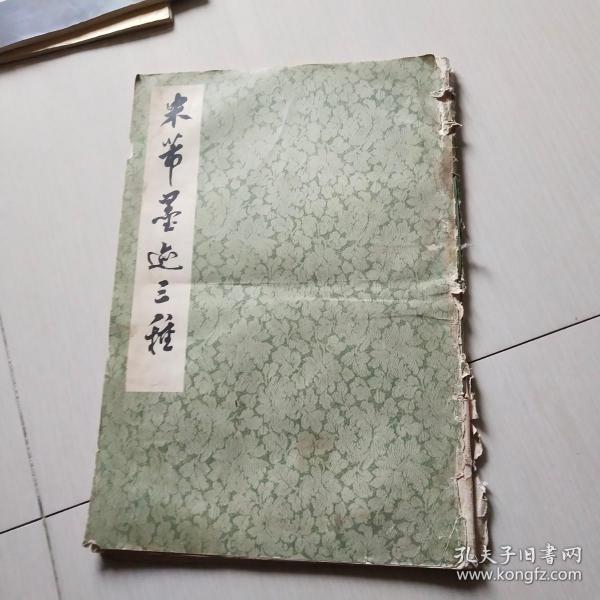 米芾墨迹三种
孔夫子旧書网
www.kongfz.com